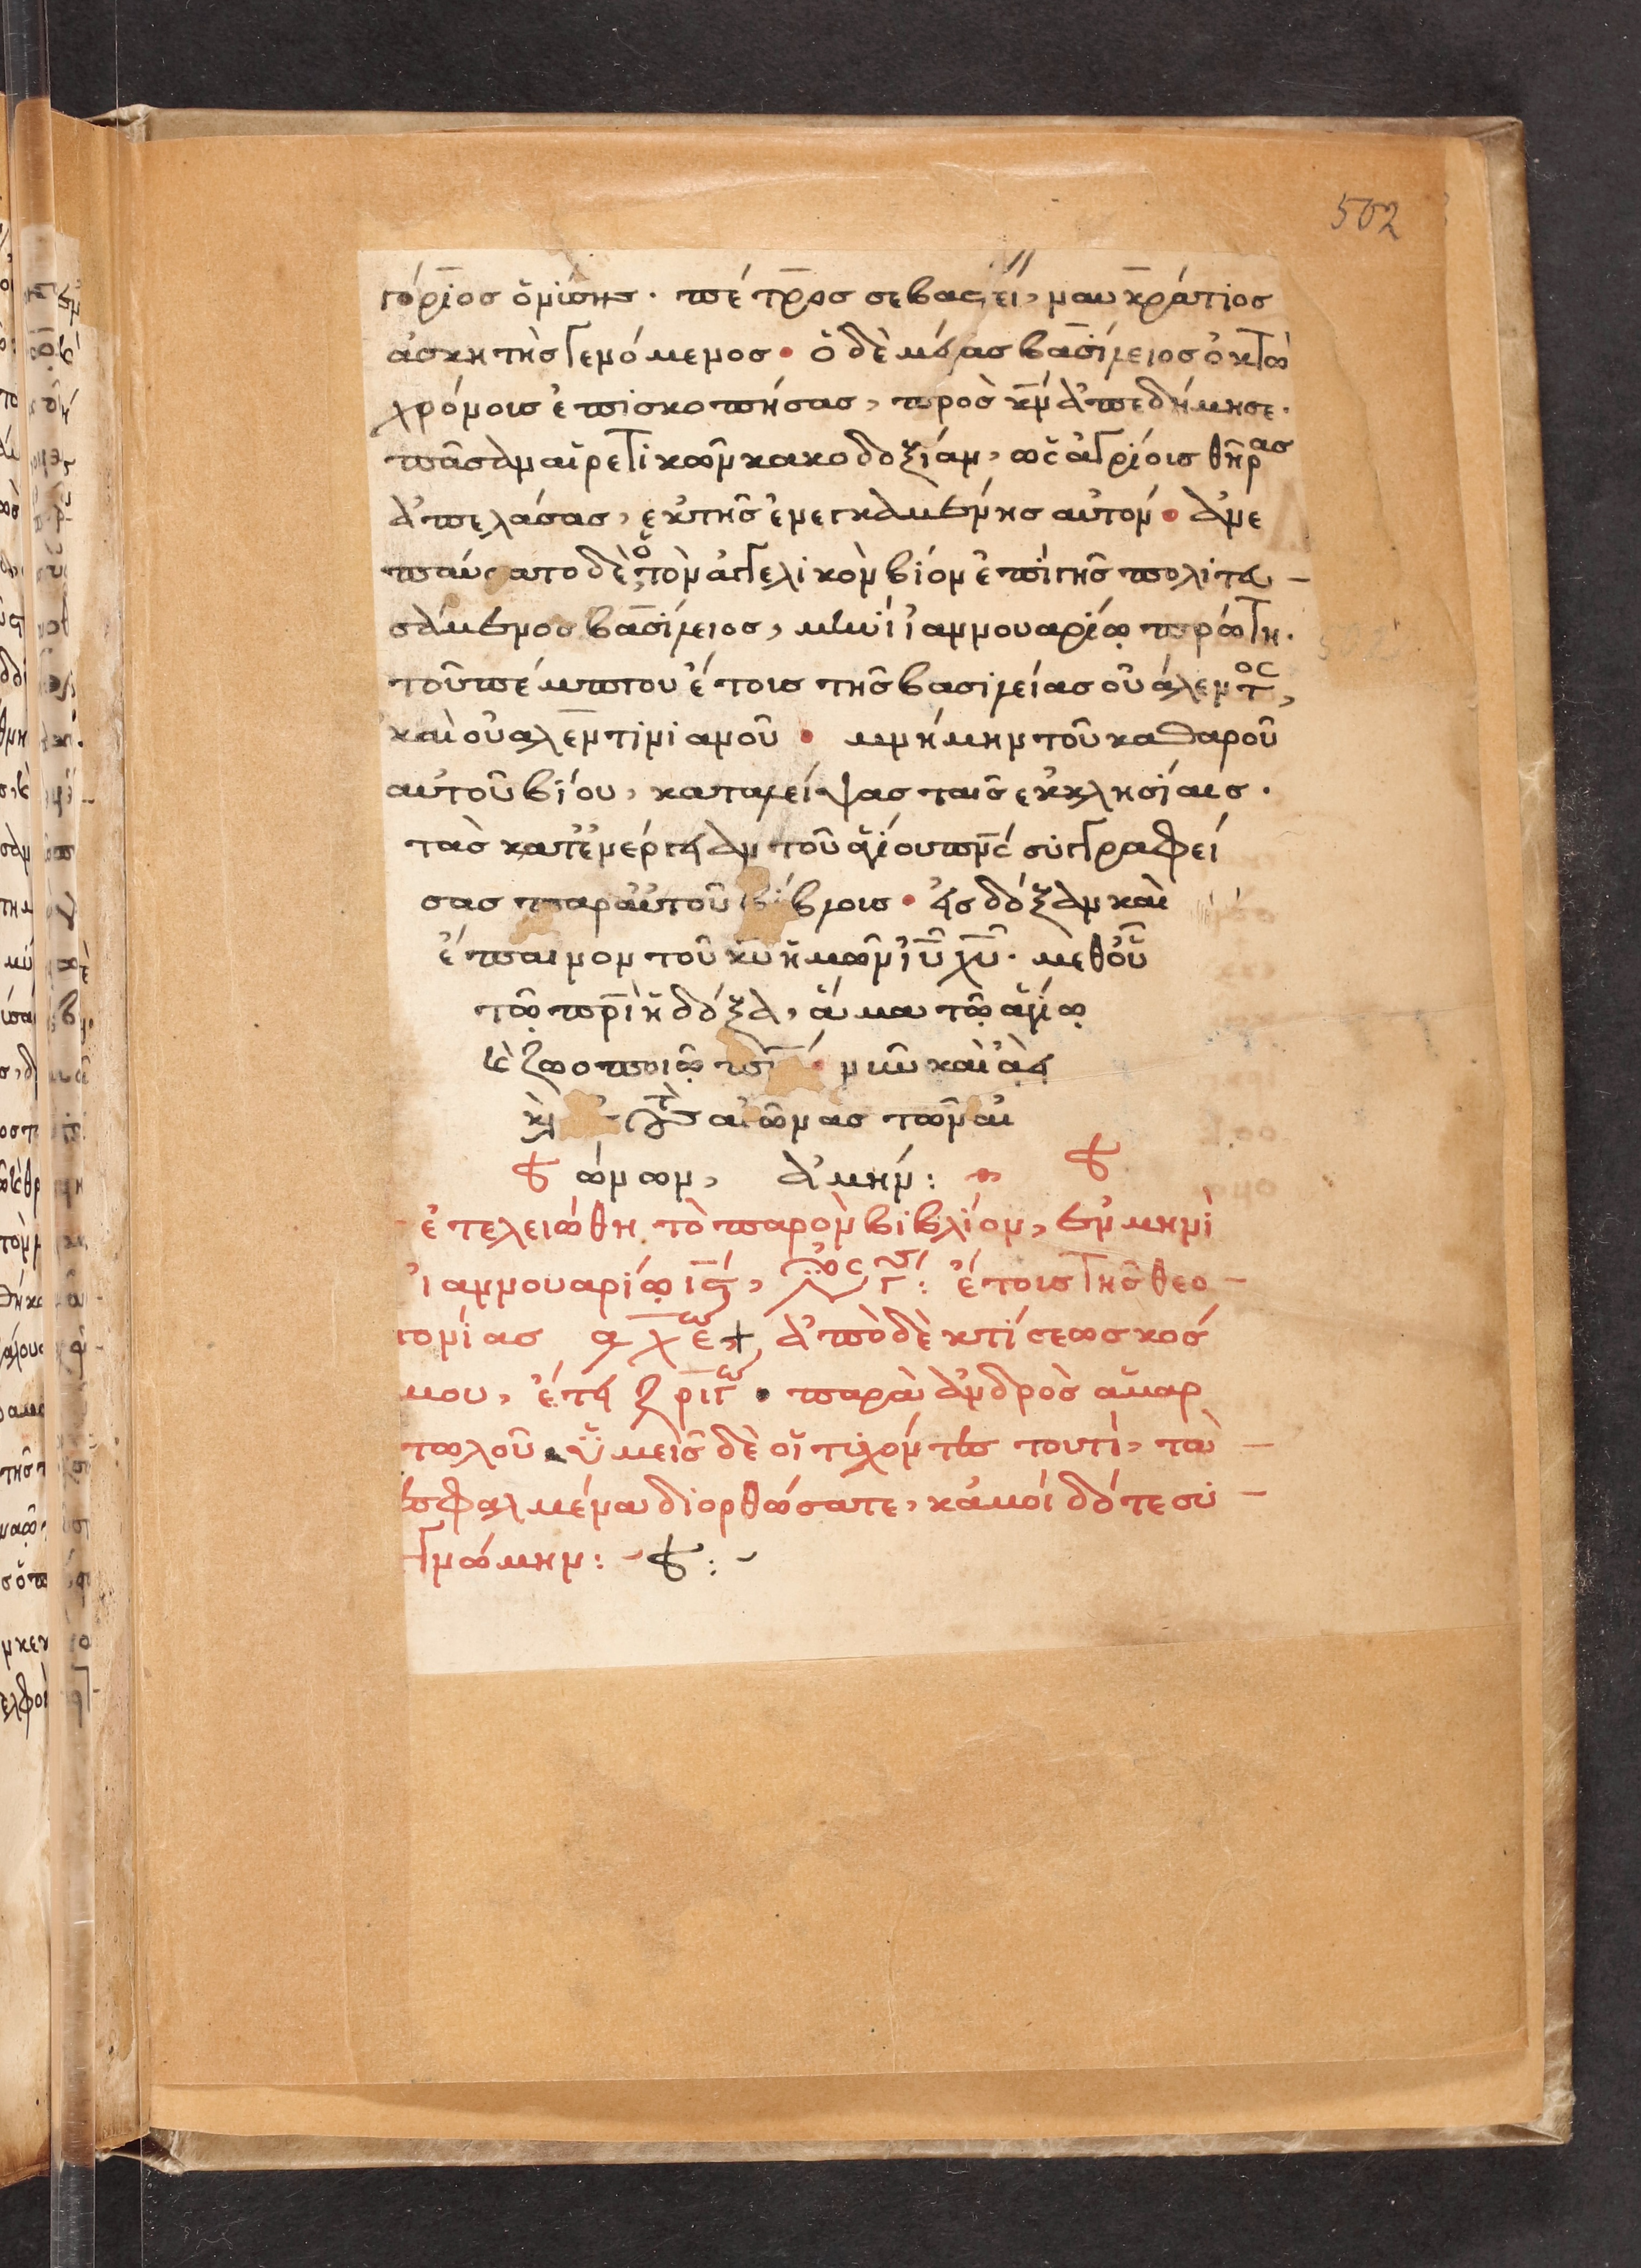 502
γόριος ὁ νύσης. πέτρος σεβαστεί, ναυκράτιος
ἀσκητὴς γενόμενος · ὁ δὲ μέγας βασίλειος ὀκτὼ
χρόνοις ἐπισκοπήσας, πρὸς κν ἀπεδήμησε.
πᾶσαν αἱρετικῶν κακοδοξίαν, ὡς ἀγρίοις θῆρας
ἀπελάσας, ἐκ τῆς ἐνεγκαμένης αὐτόν · ἀνε
παύσατο δὲ ὁ τὸν ἀγγελικὸν βίον ἐπὶ γῆς πολιτευ –
σάμενος βασίλειος, μηνὶ ἰαννουαρίῳ πρώτῃ.
τοῦ πέμπτου έτοις τῆς βασιλείας οὐάλεντος,
καὶ οὐαλεντινιανοῦ · μνήμην τοῦ καθαροῦ
αὐτοῦ βίου, καταλείψας ταῖς ἐκκλησίαις.
τὰς κατενέργειαν τοῦ ἁγίου πνς συγγραφεί
σας παραὐτοῦ βίβλοις · εἰς δόξαν καὶ
ἔπαινον τοῦ κυ ἡμῶν ιυ χυ. μεθοὗ
τῷ πρὶ ἡ δόξα, ἅμα τῷ ἁγίῳ
καὶ ζωοποιῷ πνι · νῦν καὶ ἀεὶ
καὶ εἰς τοὺς αἰῶνας τῶν αἰ
ώνων, ἀμήν :
ἐτελειώθη τὸ παρὸν βιβλίον, ἐν μηνὶ
ἰαννουαρίῳ ις, γ : έτοις τῆς θεο –
γονίας αχε + ἀπὸ δὲ κτίσεως κοσ
μου, έτει ζριγ · παρὰ ἀνδρὸς ἁμαρ
τωλοῦ · ὑμεῖς δὲ οἱ τιχόντες τουτὶ, τὰ –
ἐσφαλμένα διορθώσατε, κἀμοί δότε συ –
γγνώμην : –